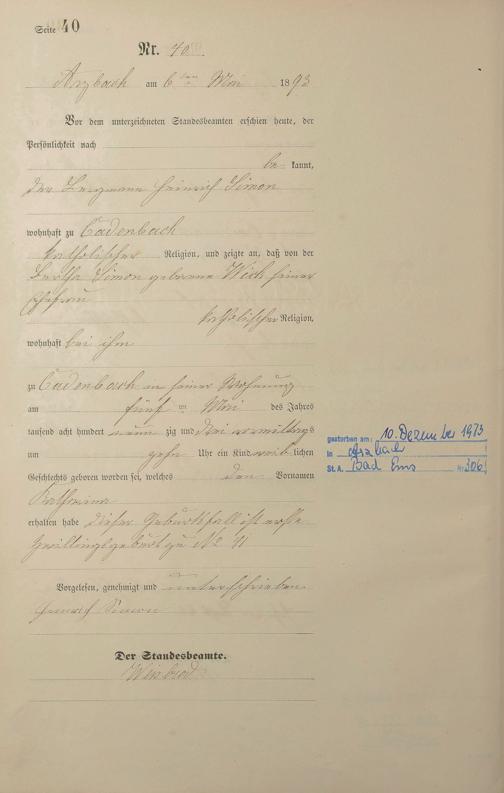 Seite 40
Nr. 40.
Arzbach am 6ten Mai 1893
Vor dem unterzeichneten Standesbeamten erschien heute, der
Persönlichkeit nach
be kannt,
der Bergmann Heinrich Simon
wohnhaft zu Cadenbach
katholischer Religion, und zeigte an, daß von der
Bertha Simon geborene Wich seiner
Ehefrau
katholischer Religion,
wohnhaft bei ihm
zu Cadenbach in seiner Wohnung
am fünf ten Mai des Jahres
tausend acht hundert neun zig und drei vormittags
um zehn Uhr ein Kind weib lichen
Geschlechts geboren worden sei, welches den Vornamen
Katharina
erhalten habe Dieser Geburtsfall ist erste
Zwillingsgeburt zu No 41
Vorgelesen, genehmigt und unterschrieben
Heinrich Simon
Der Standesbeamte.
gestorben am: 10. Dezember 1973
in Arzbach
St. A. Bad Ems Nr. 306